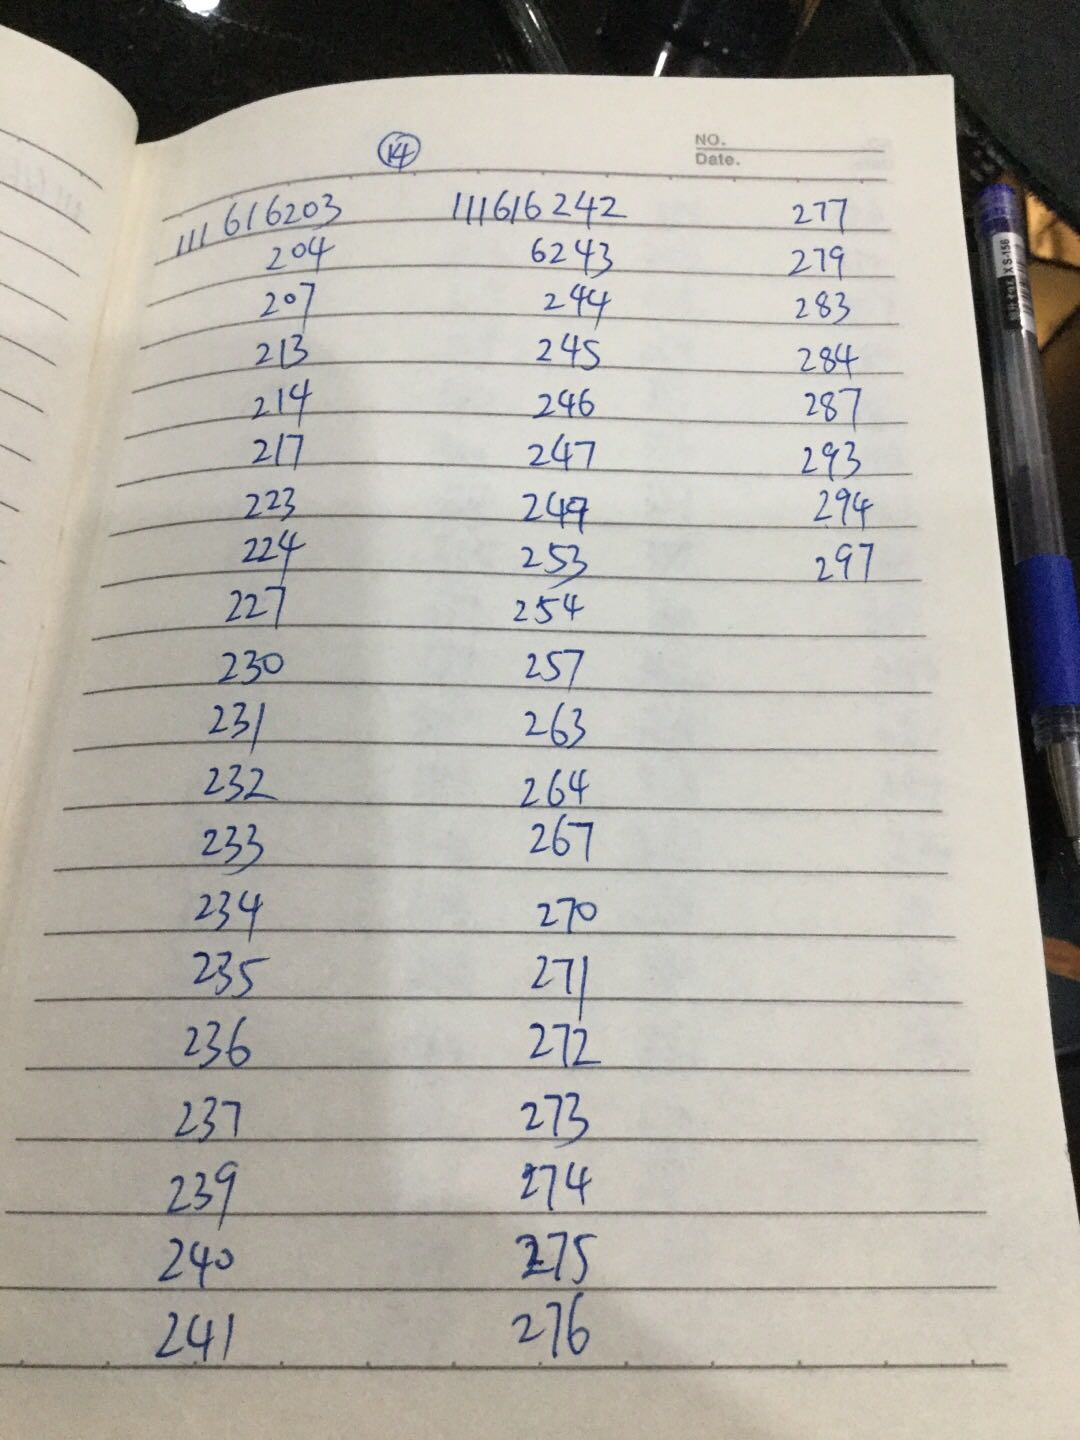 14
NO.
Date.
111616203
204
207
213
214
217
223
224
227
230
231
232
233
234
235
236
237
239
240
241
111616242
6243
244
245
246
247
249
253
254
257
263
264
267
270
271
272
273
274
275
276
277
279
283
284
287
293
294
297